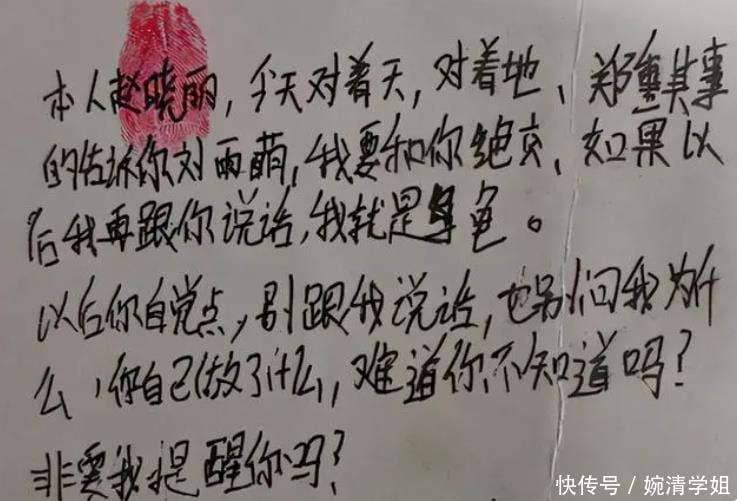 本人赵晓丽,今天对着天,对着地、郑重其事
的告诉你刘雨萌,我要和你绝交、如果以
后我再跟你说话,我就是龟。
以后你自觉点,别跟我说话,也别问我为什
么,你自己做了什么,难道你不知道吗?
非要我提醒你吗?
快传号/婉清学姐